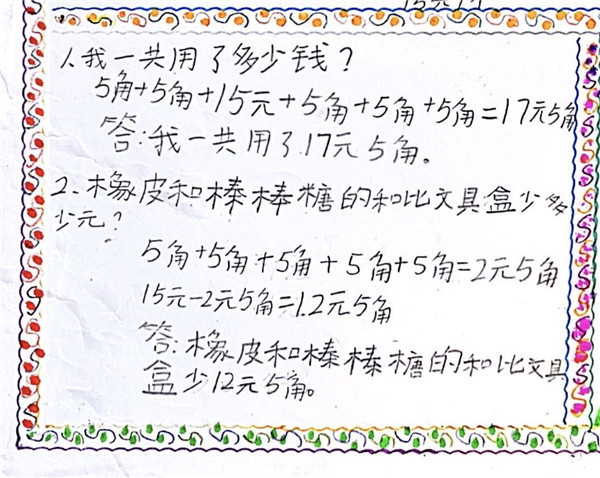 1、我一共用了多少钱？
5角+5角+15元+5角+5角+5角=17元5角
答：我一共用了17元5角。
2、橡皮和棒棒糖的和比文具盒少多
少元？
5角+5角+5角+5角+5角=2元5角
15元-2元5角=12元5角
答：橡皮和棒棒糖的和比文具
盒少12元5角。